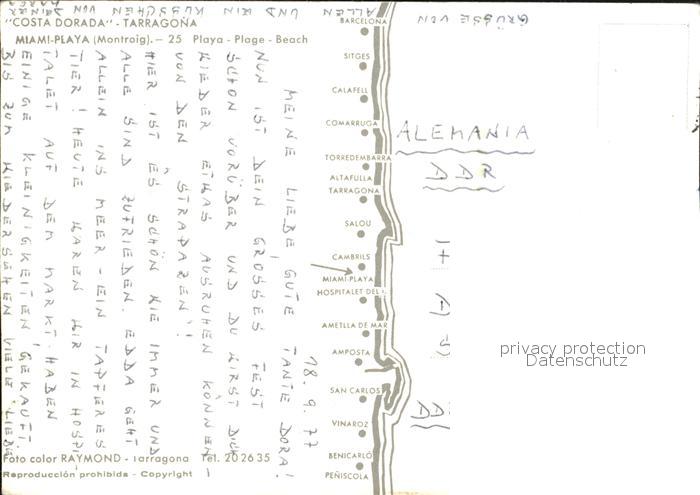 "COSTA DORADA" - TARRAGOÑA
MIAMI-PLAYA (Montroig). — 25 Playa - Plage - Beach
18.9.77
MEINE LIEBE, GUTE TANTE DORA!
NUN IST DEIN GROSSES FEST
SCHON VORÜBER UND DU WIRST DICH
WIEDER ETWAS AUSRUHEN KÖNNEN -
VON DEN „STRAPAZEN"!
HIER IST ES SCHÖN WIE IMMER UND
ALLE SIND ZUFRIEDEN. EDDA GEHT
ALLEIN INS MEER - EIN TAPFERES
TIER! HEUTE WAREN WIR IN HOSPI-
TALET AUF DEM MARKT. HABEN
EINIGE KLEINIGKEITEN GEKAUFT.
BIS ZUM WIEDERSEHEN VIELE LIEBE
GRÜSSE VON
ALLEN UND EIN KÜSSCHEN DEINER
BARCELONA
SITGES
CALAFELL
COMARRUGA
TORREDEMBARRA
ALTAFULLA
TARRAGONA
SALOU
CAMBRILS
MIAMI-PLAYA
HOSPITALET DEL I.
AMETLLA DE MAR
AMPOSTA
SAN CARLOS
VINAROZ
BENICARLÓ
PEÑISCOLA
ALEMANIA
DDR
privacy protection
Datenschutz
DD
Foto color RAYMOND - Tarragona Tel. 20 26 35
Reproducción prohibida - Copyright